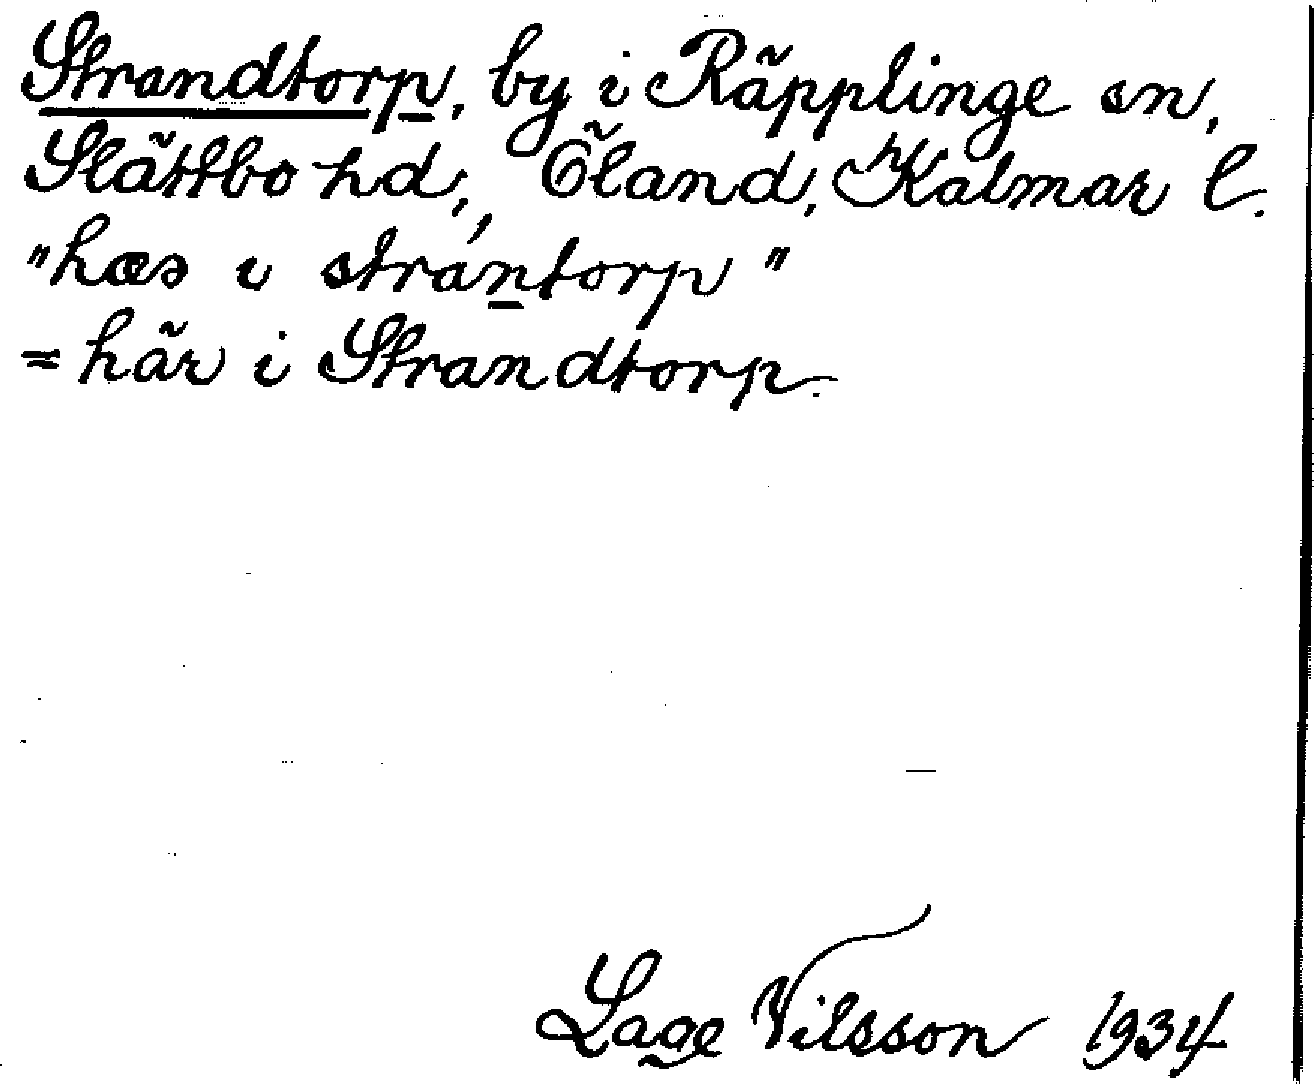 Strandtorp, by i Räpplinge sn,
Slättbo hd, Öland, Kalmar l.
"hæs i strántorp"
= här i Strandtorp.
Lage Nilsson 1934